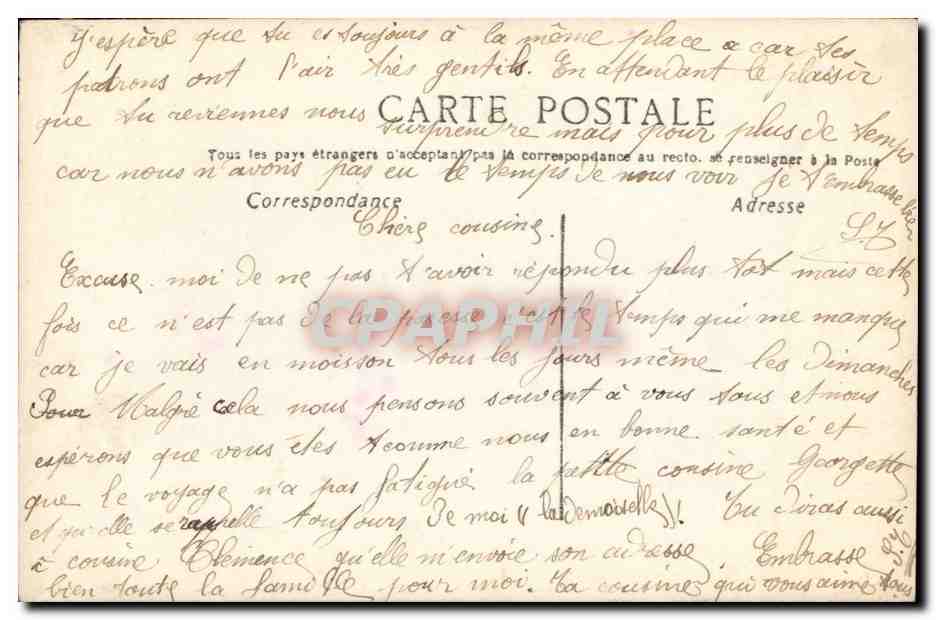 J'espère que tu es toujours à la même place car tes
patrons ont l'air très gentils. En attendant le plaisir
que tu reviennes nous
CARTE POSTALE
surprendre mais pour plus de temps
Tous les pays étrangers n'acceptant pas la correspondance au recto. se renseigner à la Poste
car nous n'avons pas eu le temps de nous voir je t'embrasse bien
Correspondance
Adresse
L.T
Chère cousine.
Excuse moi de ne pas t'avoir répondu plus tôt mais cette
fois ce n'est pas de la paresse c'est le temps qui me manque
CPAPHIL
car je vais en moisson tous les jours même les Dimanches
Pour Malgré cela nous pensons souvent à vous tous et nous
espérons que vous êtes comme nous en bonne santé et
que le voyage n'a pas fatigué la petite cousine Georgette
et qu'elle se rappelle toujours de moi (la Demoiselle)! Tu diras aussi
à cousine Clémence qu'elle m'envoie son adresse. Embrasse
bien toute la famille pour moi. Ta cousine qui vous aime tous
L.T